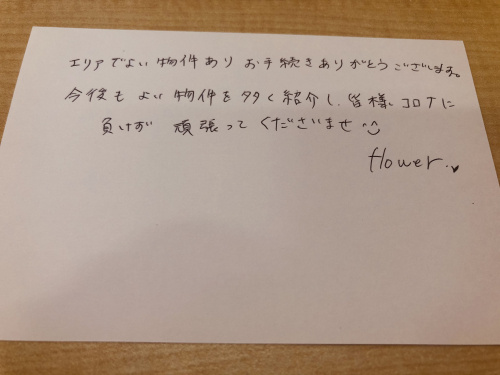 エリアでよい物件あり お手続きありがとうございます。
今後も よい物件を多く紹介し、皆様コロナに
負けず 頑張って くださいませ
flower.